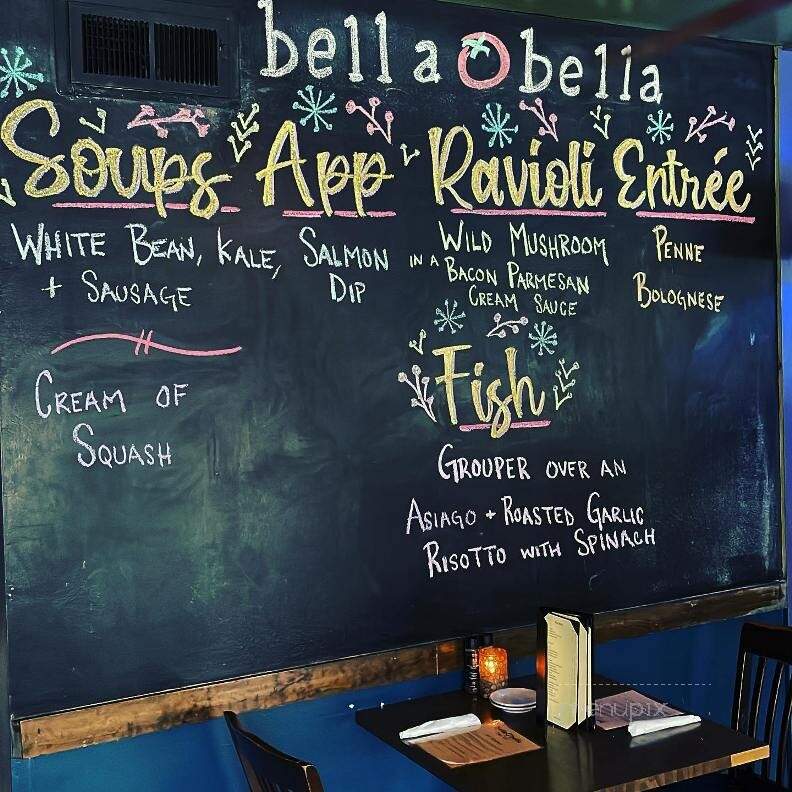 bella bella
Soups
WHITE BEAN, KALE,
+ SAUSAGE
CREAM OF
SQUASH
App
SALMON
DIP
Ravioli
WILD MUSHROOM
IN A BACON PARMESAN
CREAM SAUCE
Entrée
PENNE
BOLOGNESE
Fish
GROUPER OVER AN
ASIAGO + ROASTED GARLIC
RISOTTO WITH SPINACH
menupix